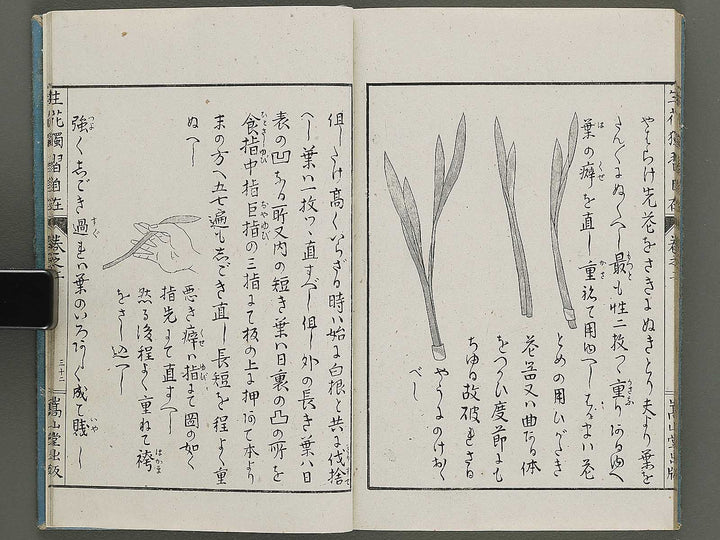 やはらけ先花をさきまぬきとり夫より葉を
さんくにぬくべし最も性二枚つゝ重り
葉の癖を直し重ねて用ゆべし
とめの用ひがたき
花器又ハ曲ある体
をつかひ度節にも
ちゆる故破れさる
やうにのけおく
べし
但したけ高くいらざる時ハ始に白根と共に伐捨
べし葉ハ一枚つゝ直すべし但し外の長き葉ハ日
表の凹ある所又内の短き葉ハ日裏の凸の所を
食指中指巨指の三指にて板の上に押へて本より
末の方へ五七遍もしごき直し長短を程よく重
ぬべし
悪き癖ハ指にて図の如く
指先にて直すべし
然る後程よく重ねて袴
をさし込べし
強くしごき過れハ葉のいろ成て賤し
生花獨習自在
巻之
三十二
嵩山堂出版